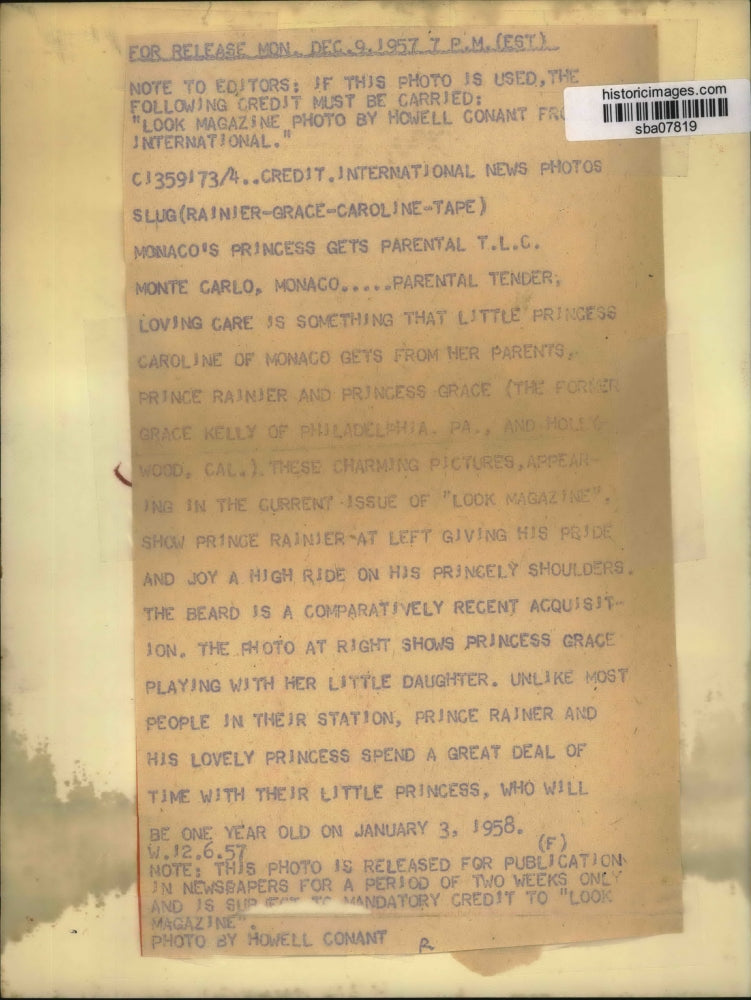 FOR RELEASE MON. DEC.9.1957 7 P.M.(EST)
NOTE TO EDITORS: IF THIS PHOTO IS USED,THE
FOLLOWING CREDIT MUST BE CARRIED:
"LOOK MAGAZINE PHOTO BY HOWELL CONANT
INTERNATIONAL."
historicimages.com
sba07819
C1359173/4..CREDIT.INTERNATIONAL NEWS PHOTOS
SLUG(RAINIER-GRACE-CAROLINE-TAPE)
MONACO'S PRINCESS GETS PARENTAL T.L.C.
MONTE CARLO, MONACO.....PARENTAL TENDER,
LOVING CARE IS SOMETHING THAT LITTLE PRINCESS
CAROLINE OF MONACO GETS FROM HER PARENTS,
PRINCE RAINIER AND PRINCESS GRACE (THE FORMER
GRACE KELLY OF PHILADELPHIA. PA., AND HOLLY-
WOOD, CAL.). THESE CHARMING PICTURES,APPEAR-
ING IN THE CURRENT ISSUE OF "LOOK MAGAZINE",
SHOW PRINCE RAINIER AT LEFT GIVING HIS PRIDE
AND JOY A HIGH RIDE ON HIS PRINCELY SHOULDERS.
THE BEARD IS A COMPARATIVELY RECENT ACQUISIT-
ION. THE PHOTO AT RIGHT SHOWS PRINCESS GRACE
PLAYING WITH HER LITTLE DAUGHTER. UNLIKE MOST
PEOPLE IN THEIR STATION, PRINCE RAINER AND
HIS LOVELY PRINCESS SPEND A GREAT DEAL OF
TIME WITH THEIR LITTLE PRINCESS, WHO WILL
BE ONE YEAR OLD ON JANUARY 3, 1958.
W.12.6.57 (F)
NOTE: THIS PHOTO IS RELEASED FOR PUBLICATION
IN NEWSPAPERS FOR A PERIOD OF TWO WEEKS ONLY
AND IS SUBJECT TO MANDATORY CREDIT TO "LOOK
MAGAZINE".
PHOTO BY HOWELL CONANT